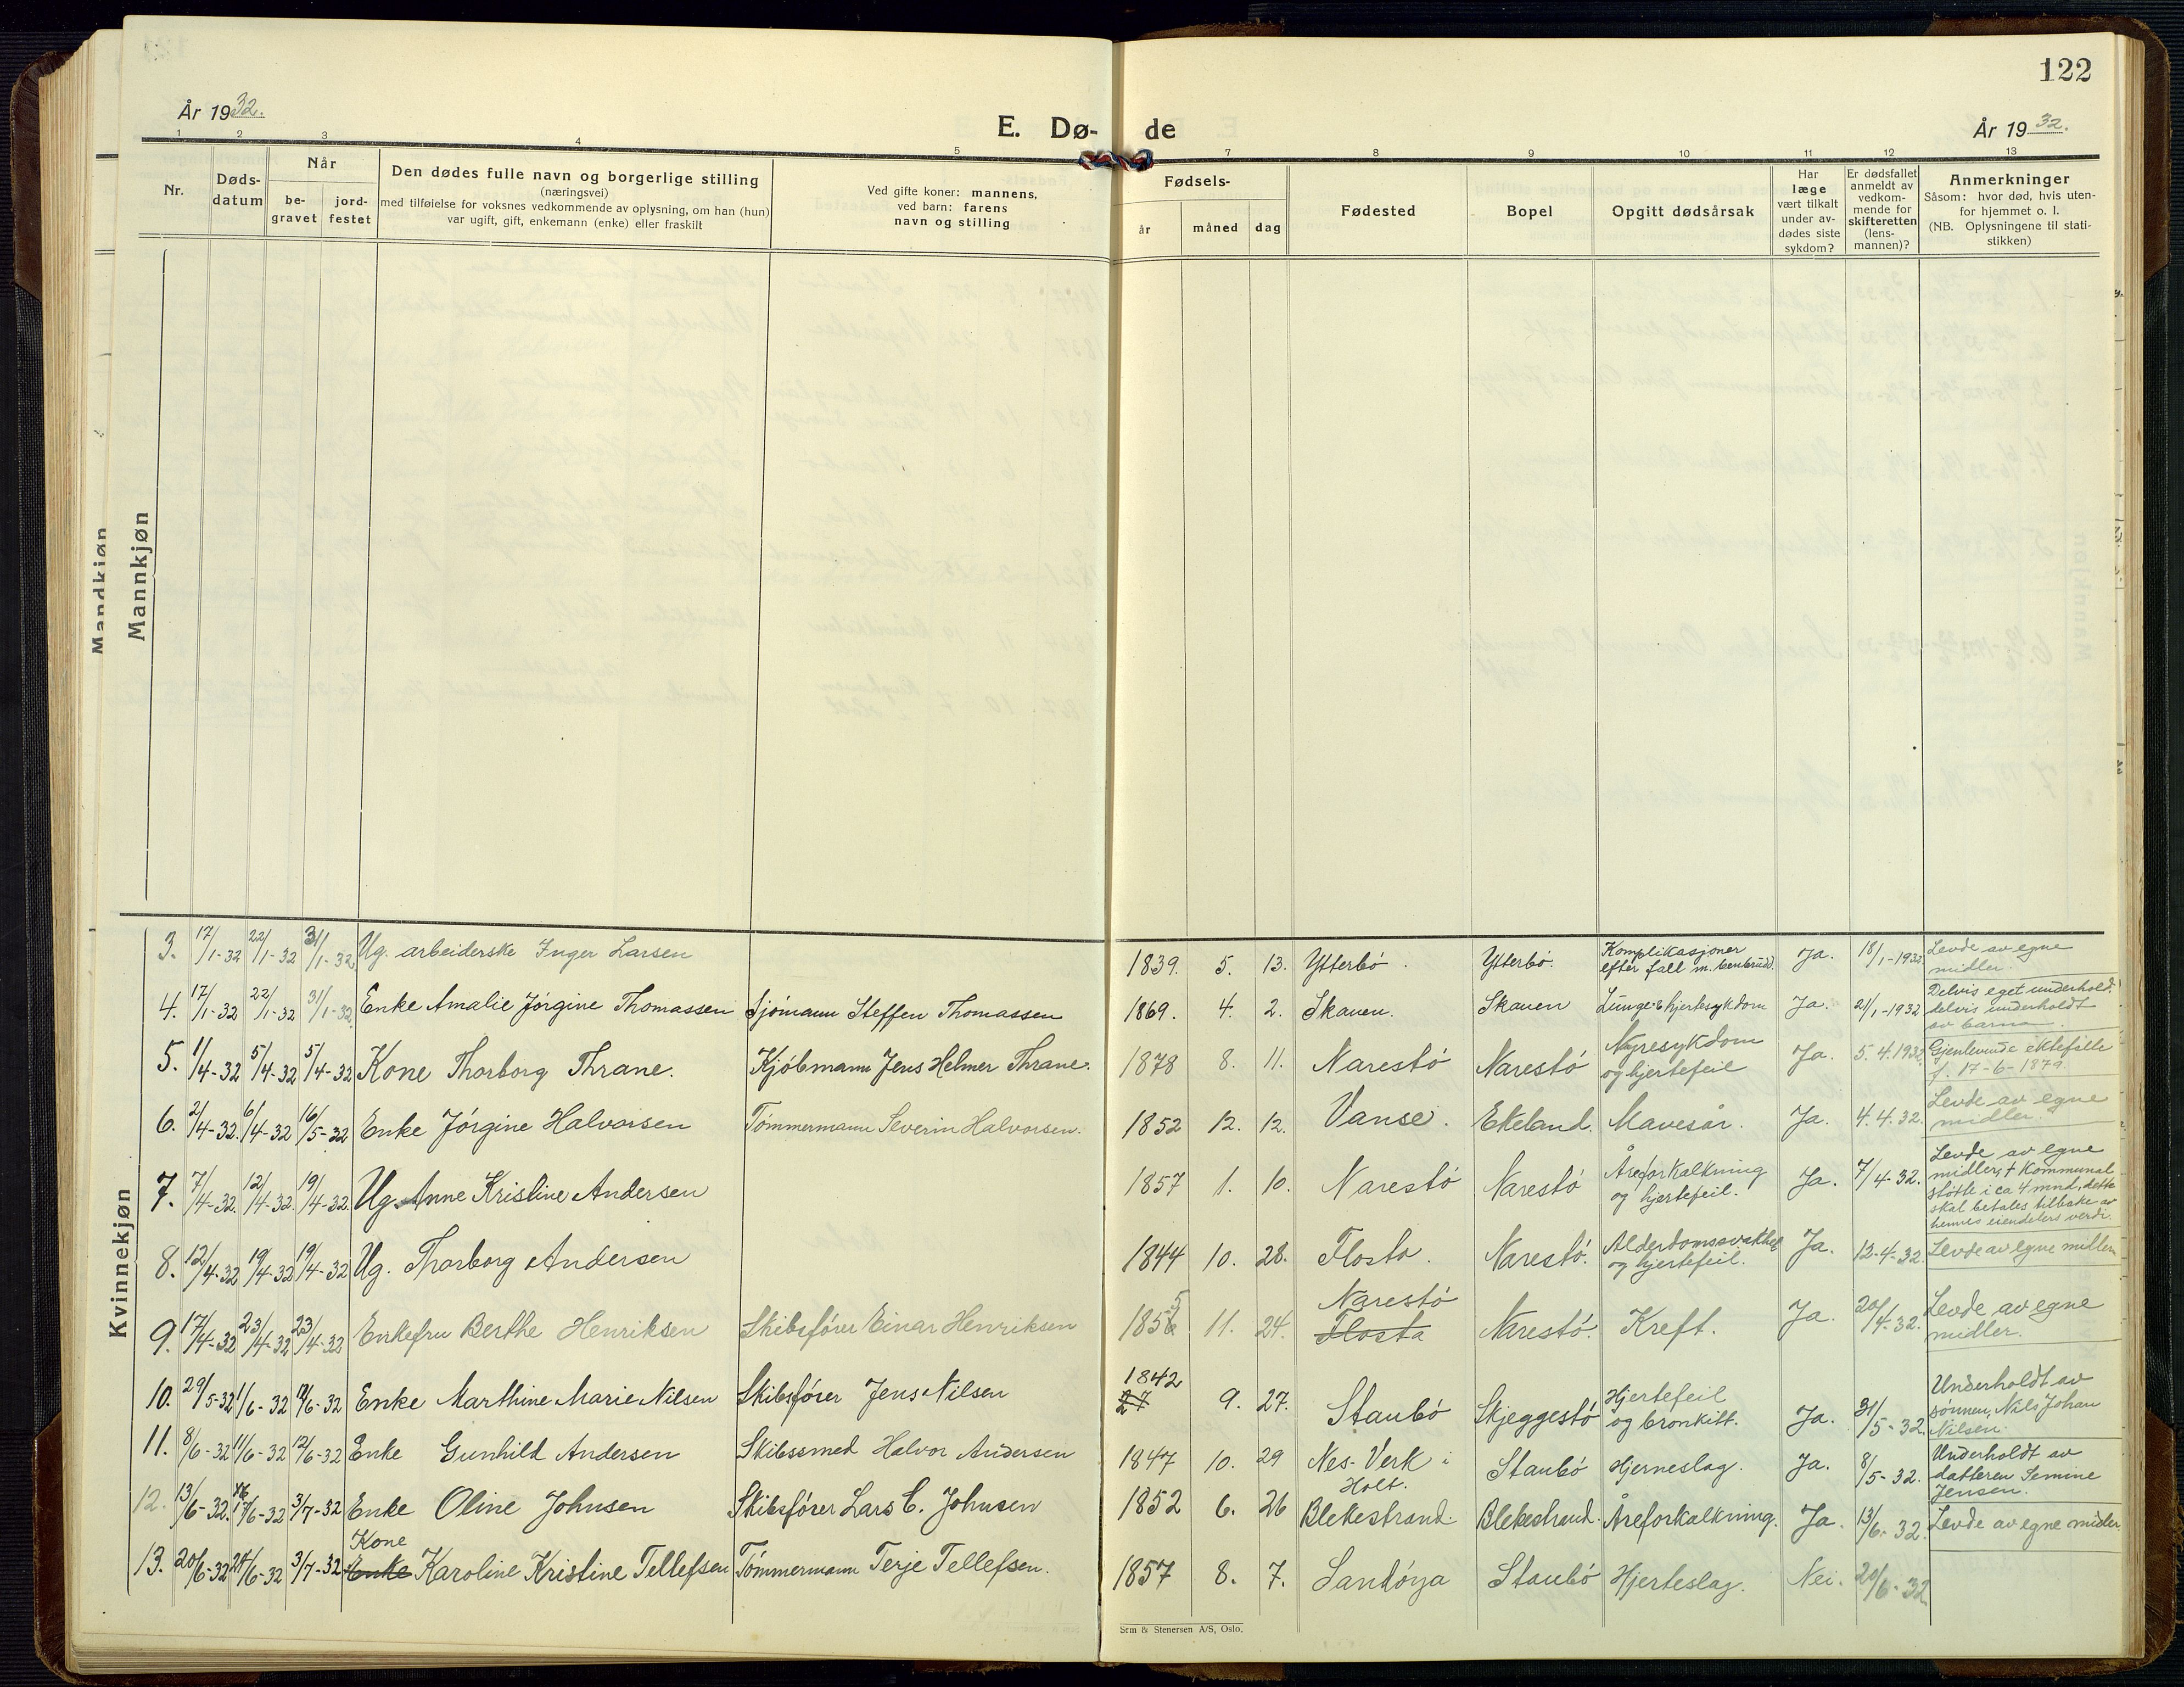 122
År 1932.
E. Dø- de
År 1932.
1 2 3 4 5 7 8 9 10 11 12 13
Nr.
Døds-
datum
Når
be-
gravet
jord-
festet
Den dødes fulle navn og borgerlige stilling
(næringsvei)
med tilføielse for voksnes vedkommende av oplysning, om han (hun)
var ugift, gift, enkemann (enke) eller fraskilt
Ved gifte koner: mannens,
ved barn: farens
navn og stilling
Fødsels-
år måned dag
Fødested
Bopel
Opgitt dødsårsak
Har
læge
vært tilkalt
under av-
dødes siste
sykdom?
Er dødsfallet
anmeldt av
vedkom-
mende for
skifteretten
(lens-
mannen)?
Anmerkninger
Såsom: hvor død, hvis uten-
for hjemmet o. l.
(NB. Oplysningene til stati-
stikken)
Mandkjøn
Mannkjøn
Kvinnekjøn
3. 17/1-32 22/1-32 31/1-32 Ug. arbeiderske Inger Larsen 1839. 5. 13. Ytterbö. Ytterbö. Komplikasjoner
efter fall m. benbrudd. Ja. 18/1-1932 Levde av egne
midler.
4. 17/1-32 22/1-32 31/1-32 Enke Amalie Jörgine Thomassen Sjömann Steffen Thomassen 1869. 4. 2. Skauen. Skauen Lunge & hjertesykdom Ja. 21/1-1932 Delvis eget underhold,
delvis underholdt
av barna.
5. 1/4-32 5/4-32 5/4-32 Kone Thorborg Thrane. Kjöbmann Jens Helmer Thrane. 1878 8. 11. Narestö Narestö Nyresykdom
og hjertefeil Ja. 5.4.1932. Gjenlevende ektefelle
f. 17-6-1879.
6. 2/4-32. 6/4-32 16/5-32 Enke Jörgine Halvorsen Tömmermann Severin Halvorsen. 1852 12. 12. Vanse. Ekeland. Mavesår. Ja. 4.4.32. Levde av egne
midler.
7. 7/4-32. 12/4-32. 19/4-32. Ug. Anne Kristine Andersen 1857 1. 10. Narestö Narestö Åreforkalkning
og hjertefeil. Ja. 7/4-32. Levde av egne
midler, + kommunal
stötte i ca 4 mnd, dette
skal betales tilbake av
hennes eiendelers verdi.
8. 12/4-32 19/4-32 19/4-32 Ug. Thorborg Andersen 1844 10. 28. Flosta. Narestö. Alderdomssvakhet
og hjertefeil. Ja. 12-4-32. Levde av egne midler
9. 17/4-32 23/4-32 23/4-32 Enkefru Berthe Henriksen Skibsförer Einar Henriksen 1855 11. 24. Narestö
Flosta Narestö. Kreft. Ja. 20/4-32. Levde av egne
midler.
10. 29/5-32 1/6-32 12/6-32 Enke Marthine Marie Nilsen Skibsförer Jens Nilsen 1842
27 9. 27. Staubö Skjeggestö Hjertefeil
og bronkitt. Ja. 31/5-32. Underholdt av
sönnen, Nils Johan
Nilsen.
11. 8/6-32 11/6-32 12/6-32 Enke Gunhild Andersen Skibssmed Halvor Andersen 1847 10. 29 Nes-Verk i
Holt. Staubö Hjerneslag. Ja. 8/5-32. Underholdt av
datteren Semine
Jensen.
12. 13/6-32. /6-32 3/7-32 Enke Oline Johnsen Skibsförer Lars C. Johnsen 1852 6. 26 Blekestrand. Blekestrand. Åreforkalkning. Ja. 13/6-32. Levde av egne midler
13. 20/6-32 24/6-32 3/7-32 Kone
Enke Karoline Kristine Tellefsen Tömmermann Terje Tellefsen. 1857 8. 7. Sandöya Staubö Hjerteslag. Nei. 20/6-32
Sem & Stenersen A/S, Oslo.